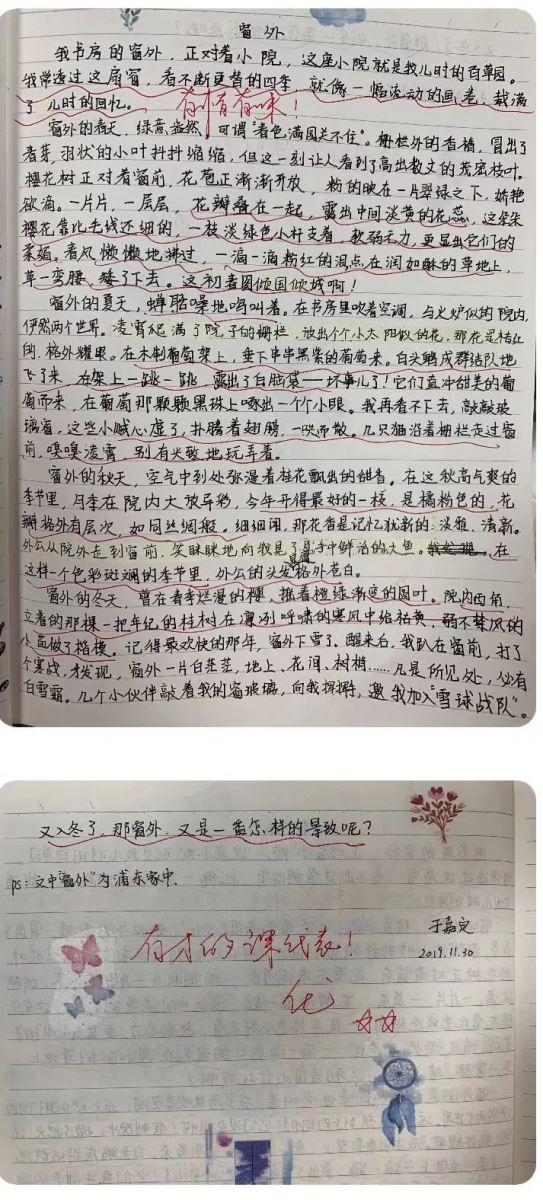 窗外
我书房的窗外，正对着小院，这座小院就是我儿时的百草园。
我常透过这扇窗，看不断更替的四季，就像一幅流动的画卷，载满
了儿时的回忆。
有情有味！
窗外的春天，绿意盎然，可谓“春色满园关不住”。栅栏外的香椿，冒出了
春芽，羽状的小叶抖抖缩缩，但这一刻让人看到了高出数丈的茂密枝叶。
樱花树正对着窗前，花苞正渐渐开放，粉的映在一片翠绿之下，娇艳
欲滴。一片片，一层层，花瓣叠在一起，露出中间淡黄的花蕊，这朵朵
樱花靠比毛线还细的，一枝淡绿色小杆支着，软弱无力，更显出它们的
柔弱。春风懒懒地拂过，一滴一滴粉红的泪点在润如酥的草地上，
草一弯腰，矮了下去。这初春图倾国倾城啊！
窗外的夏天，蝉聒噪地鸣叫着。在书房里吹着空调，与火炉似的院内，
俨然两个世界。凌霄爬满了院子的栅栏，放出个个小太阳似的花，那花是桔红
的，格外耀眼。在木制葡萄架上，垂下串串黑紫的葡萄来。白头鹎成群结队地
飞了来，在架上一跳一跳，露出了白脑袋——坏事儿了！它们直冲甜美的葡
萄而来，在葡萄那颗颗黑珠上啄出一个个小眼。我再看不下去，敲敲玻
璃窗，这些小贼心虚了，扑腾着翅膀，一哄而散。几只猫沿着栅栏走过窗
前，嗅嗅凌霄，别有兴致地玩弄着。
窗外的秋天，空气中到处弥漫着桂花飘出的甜香。在这秋高气爽的
季节里，月季在院内大放异彩，今年开得最好的一枝，是橘粉色的，花
瓣格外有层次，如同丝绸般。细细闻，那花香是记忆犹新的：淡雅、清新。
外公从院外走到窗前，笑眯眯地向我晃了晃手中鲜活的大鱼。在
这样一个色彩斑斓的季节里，外公的头发显得格外苍白。
窗外的冬天，曾在春季烂漫的樱，摇着橙绿渐变的圆叶。院内西角，
立着的那棵一把年纪的桂树在凛冽呼啸的寒风中给祐黄、弱不禁风的
小苗做了榜样。记得最欢快的那年，窗外下雪了。醒来后，我趴在窗前，打了
个寒战，才发现，窗外一片白茫茫，地上、花间、树梢……凡是所见处，必有
白雪霜。几个小伙伴敲着我的窗玻璃，向我挥挥手，邀我加入“雪球战队”。
又入冬了，那窗外，又是一番怎样的景致呢？
ps：文中“窗外”为浦东家中。
于嘉定
2019.11.30
有才的课代表！
优